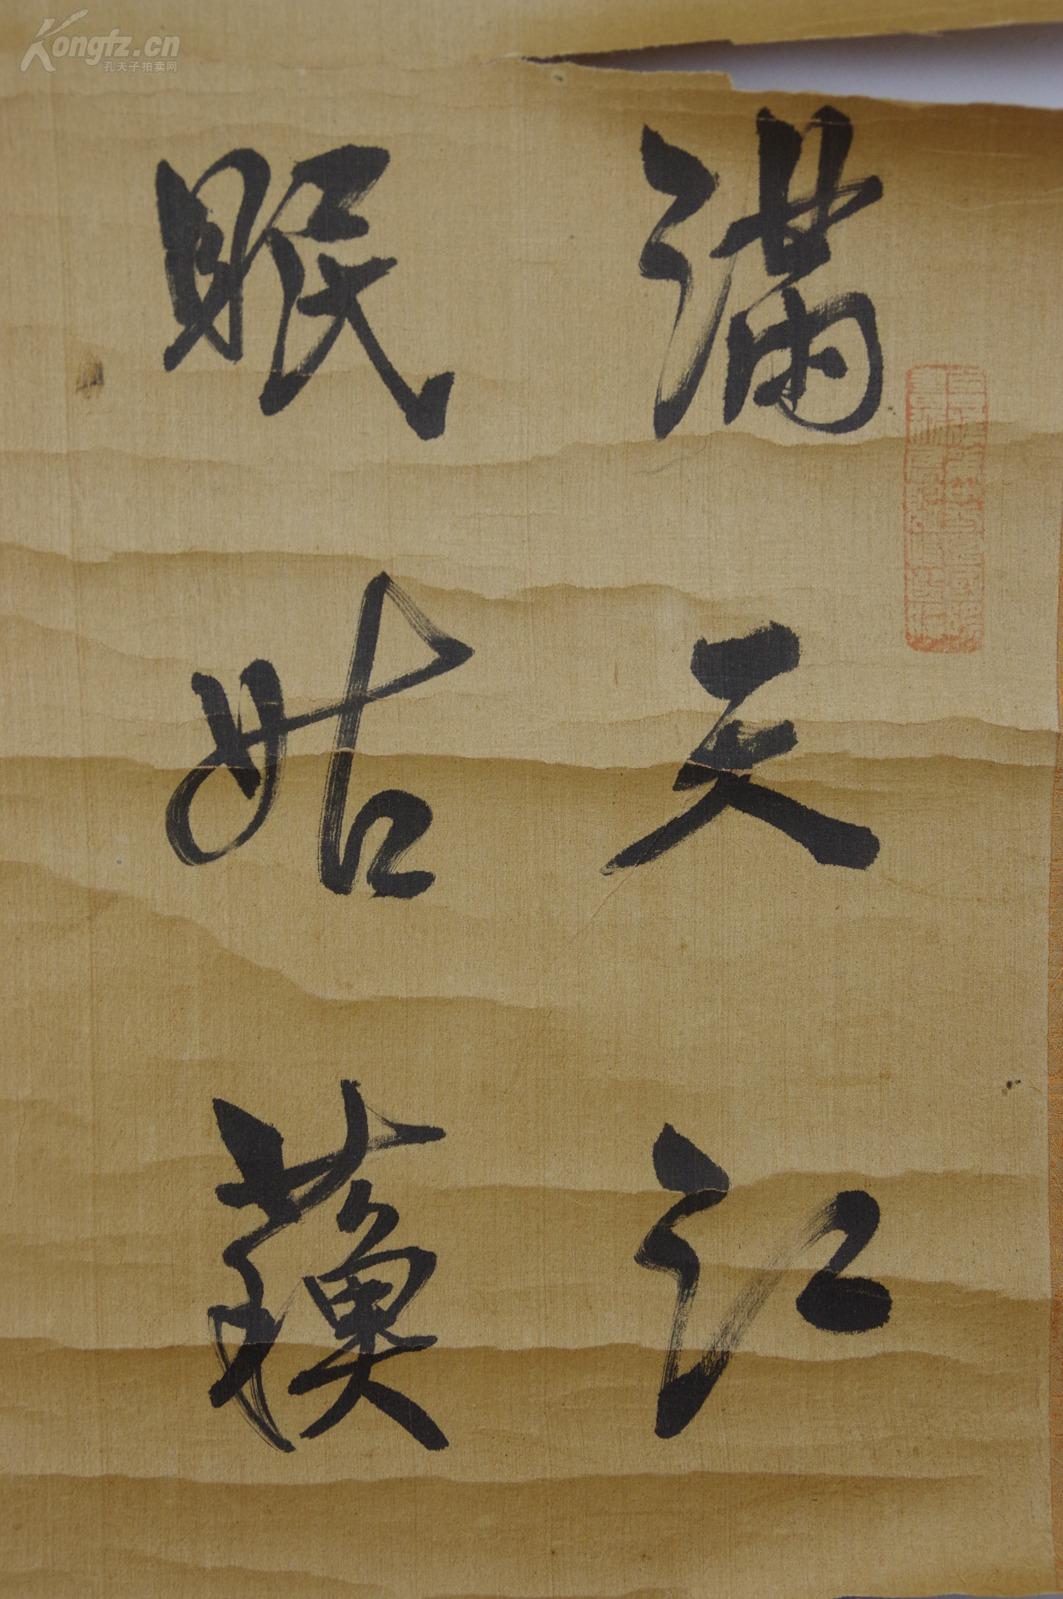 滿天江
眠姑蘓
Kongfz.cn
孔夫子拍卖网